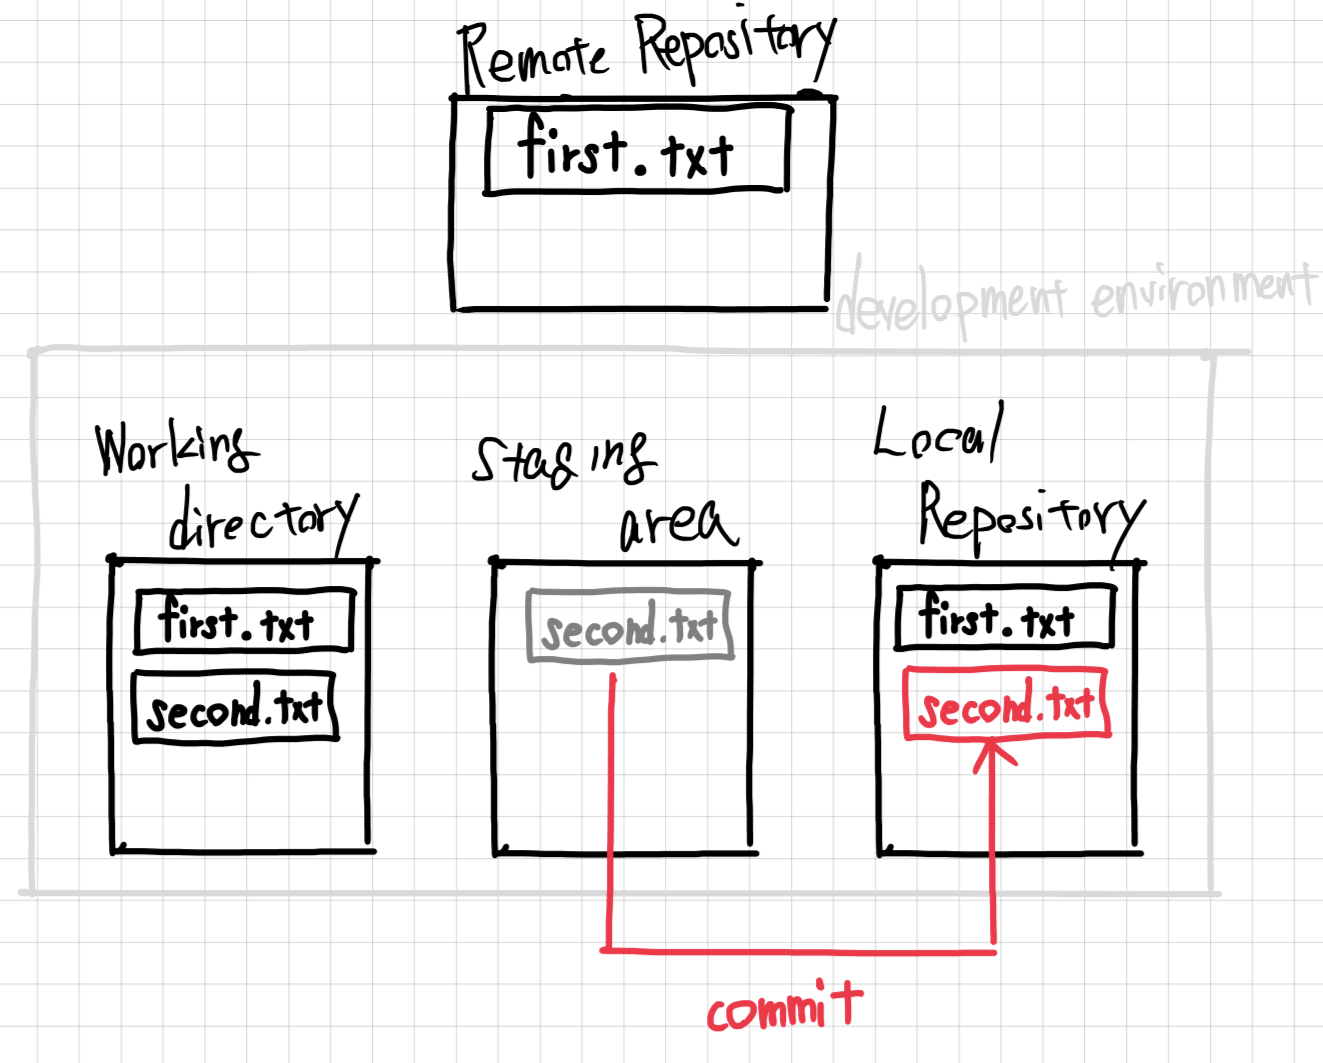 Remote Repository
first.txt
development environment
Working
directory
first.txt
second.txt
Staging
area
second.txt
Local
Repository
first.txt
second.txt
commit